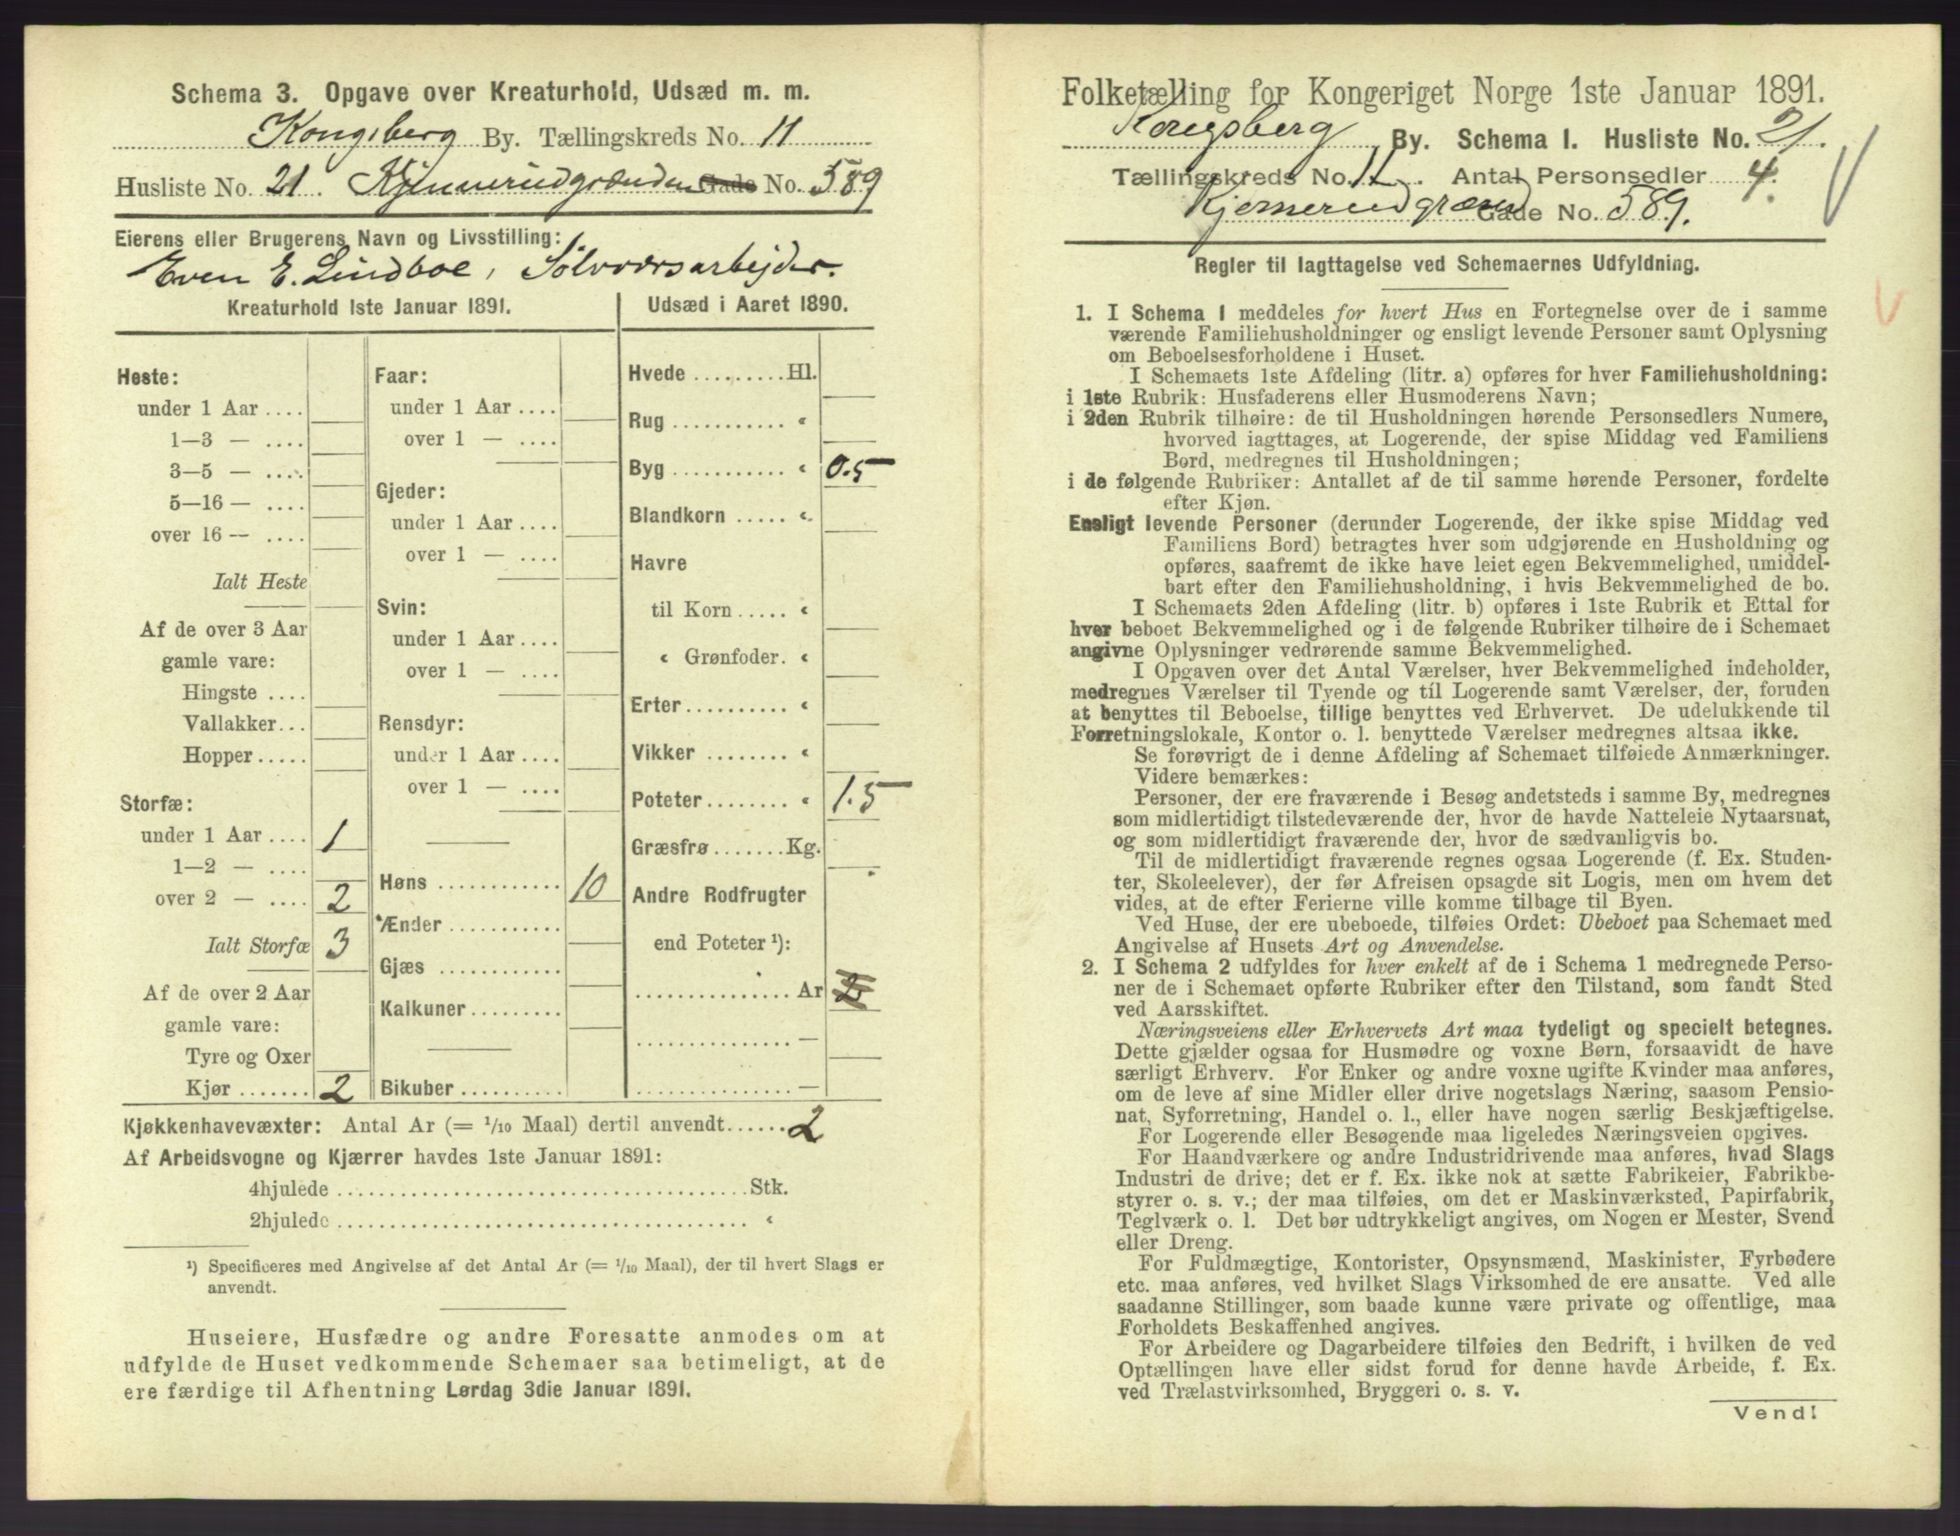 Schema 3. Opgave over Kreaturhold, Udsæd m. m.
Kongsberg By. Tællingskreds No. 11
Husliste No. 21. Kjennerudgrænden Gade No. 589
Eierens eller Brugerens Navn og Livsstilling:
Even E. Lindboe, Sølvværsarbejder.
Kreaturhold 1ste Januar 1891.
Heste:
under 1 Aar ....
1—3 — ....
3—5 — ....
5—16 — ....
over 16 — ....
Ialt Heste
Af de over 3 Aar
gamle vare:
Hingste ....
Vallakker...
Hopper.....
Storfæ:
under 1 Aar .... 1
1—2 — ....
over 2 — .... 2
Ialt Storfæ 3
Af de over 2 Aar
gamle vare:
Tyre og Oxer
Kjør ....... 2
Faar:
under 1 Aar ....
over 1 — ....
Gjeder:
under 1 Aar ....
over 1 — ....
Svin:
under 1 Aar ....
over 1 — ....
Rensdyr:
under 1 Aar ....
over 1 — ....
Høns ............ 10
Ænder ...........
Gjæs ............
Kalkuner.........
Bikuber..........
Udsæd i Aaret 1890.
Hvede .........Hl.
Rug ........... «
Byg ........... « 0.5
Blandkorn ..... «
Havre
til Korn ..... «
« Grønfoder. «
Erter.......... «
Vikker ........ «
Poteter........ « 1.5
Græsfrø .......Kg.
Andre Rodfrugter
end Poteter ¹):
............... Ar
............... —
............... —
Kjøkkenhavevæxter: Antal Ar (= 1/10 Maal) dertil anvendt...... 2
Af Arbeidsvogne og Kjærrer havdes 1ste Januar 1891:
4hjulede ........................................Stk.
2hjulede ........................................ «
¹) Specificeres med Angivelse af det Antal Ar (= 1/10 Maal), der til hvert Slags er
anvendt.
Huseiere, Husfædre og andre Foresatte anmodes om at
udfylde de Huset vedkommende Schemaer saa betimeligt, at de
ere færdige til Afhentning Lørdag 3die Januar 1891.
Folketælling for Kongeriget Norge 1ste Januar 1891.
Kongsberg By. Schema I. Husliste No. 21.
Tællingskreds No. 11. Antal Personsedler 4.
Gade No. 589.
Regler til Iagttagelse ved Schemaernes Udfyldning.
1. I Schema 1 meddeles for hvert Hus en Fortegnelse over de i samme
værende Familiehusholdninger og ensligt levende Personer samt Oplysning
om Beboelsesforholdene i Huset.
I Schemaets 1ste Afdeling (litr. a) opføres for hver Familiehusholdning:
i 1ste Rubrik: Husfaderens eller Husmoderens Navn;
i 2den Rubrik tilhøire: de til Husholdningen hørende Personsedlers Numere,
hvorved iagttages, at Logerende, der spise Middag ved Familiens
Bord, medregnes til Husholdningen;
i de følgende Rubriker: Antallet af de til samme hørende Personer, fordelte
efter Kjøn.
Ensligt levende Personer (derunder Logerende, der ikke spise Middag ved
Familiens Bord) betragtes hver som udgjørende en Husholdning og
opføres, saafremt de ikke have leiet egen Bekvemmelighed, umiddel-
bart efter den Familiehusholdning, i hvis Bekvemmelighed de bo.
I Schemaets 2den Afdeling (litr. b) opføres i 1ste Rubrik et Ettal for
hver beboet Bekvemmelighed og i de følgende Rubriker tilhøire de i Schemaet
angivne Oplysninger vedrørende samme Bekvemmelighed.
I Opgaven over det Antal Værelser, hver Bekvemmelighed indeholder,
medregnes Værelser til Tyende og til Logerende samt Værelser, der, foruden
at benyttes til Beboelse, tillige benyttes ved Erhvervet. De udelukkende til
Forretningslokale, Kontor o. l. benyttede Værelser medregnes altsaa ikke.
Se forøvrigt de i denne Afdeling af Schemaet tilføiede Anmærkninger.
Videre bemærkes:
Personer, der ere fraværende i Besøg andetsteds i samme By, medregnes
som midlertidigt tilstedeværende der, hvor de havde Natteleie Nytaarsnat,
og som midlertidigt fraværende der, hvor de sædvanligvis bo.
Til de midlertidigt fraværende regnes ogsaa Logerende (f. Ex. Studen-
ter, Skoleelever), der før Afreisen opsagde sit Logis, men om hvem det
vides, at de efter Ferierne ville komme tilbage til Byen.
Ved Huse, der ere ubeboede, tilføies Ordet: Ubeboet paa Schemaet med
Angivelse af Husets Art og Anvendelse.
2. I Schema 2 udfyldes for hver enkelt af de i Schema 1 medregnede Perso-
ner de i Schemaet opførte Rubriker efter den Tilstand, som fandt Sted
ved Aarsskiftet.
Næringsveiens eller Erhvervets Art maa tydeligt og specielt betegnes.
Dette gjælder ogsaa for Husmødre og voxne Børn, forsaavidt de have
særligt Erhverv. For Enker og andre voxne ugifte Kvinder maa anføres,
om de leve af sine Midler eller drive nogetslags Næring, saasom Pensio-
nat, Syforretning, Handel o. l., eller have nogen særlig Beskjæftigelse.
For Logerende eller Besøgende maa ligeledes Næringsveien opgives.
For Haandværkere og andre Industridrivende maa anføres, hvad Slags
Industri de drive; det er f. Ex. ikke nok at sætte Fabrikeier, Fabrikbe-
styrer o. s. v.; der maa tilføies, om det er Maskinværksted, Papirfabrik,
Teglværk o. l. Det bør udtrykkeligt angives, om Nogen er Mester, Svend
eller Dreng.
For Fuldmægtige, Kontorister, Opsynsmænd, Maskinister, Fyrbødere
etc. maa anføres, ved hvilket Slags Virksomhed de ere ansatte. Ved alle
saadanne Stillinger, som baade kunne være private og offentlige, maa
Forholdets Beskaffenhed angives.
For Arbeidere og Dagarbeidere tilføies den Bedrift, i hvilken de ved
Optællingen have eller sidst forud for denne havde Arbeide, f. Ex.
ved Trælastvirksomhed, Bryggeri o. s. v.
Vend!